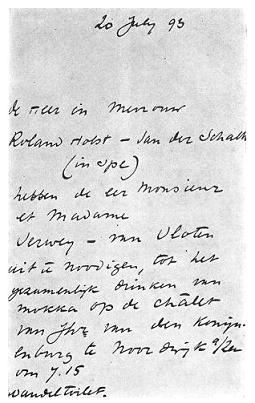 20 July 93
de Heer en Mevrouw
Roland Holst – van der Schalk
(in spe)
hebben de eer Monsieur
et Madame
Verwey – van Vloten
uit te noodigen, tot het
gezamenlijk drinken van
mokka op de chalet
van Jhr van den Konijn-
enburg te Noordwijk a/Zee
om 7.15
wandeltoilet.